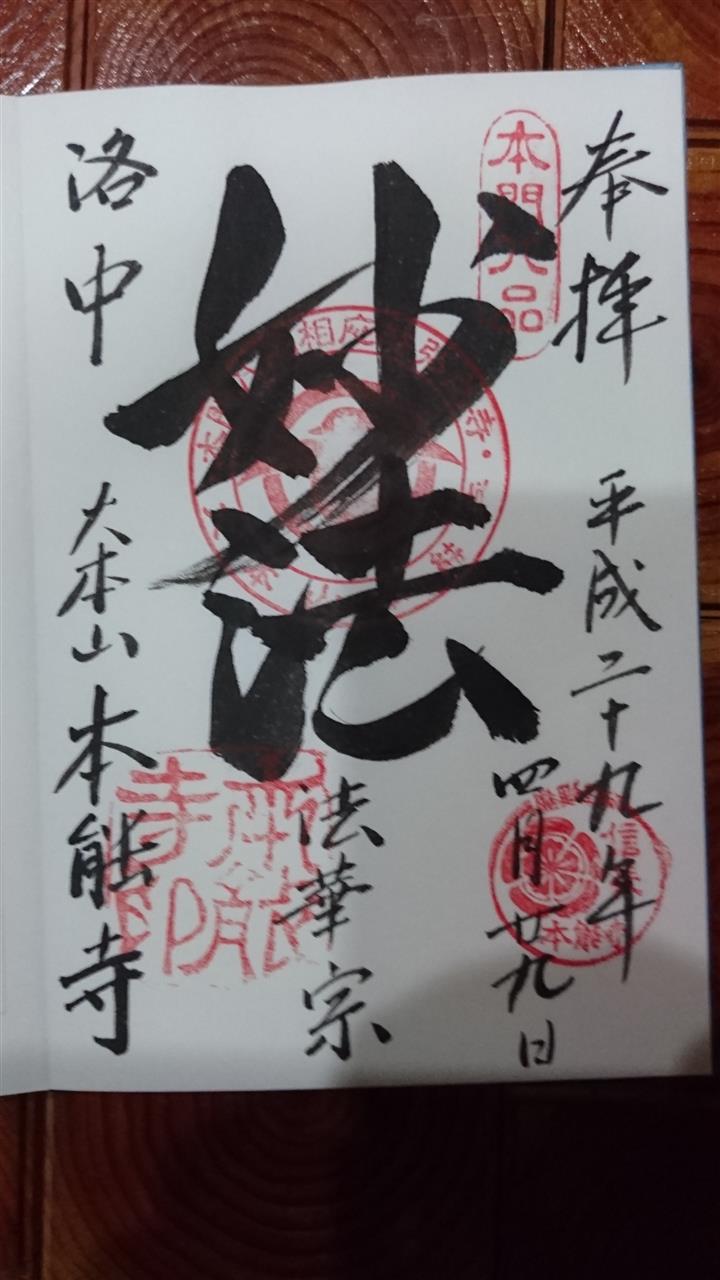 奉拝
平成二十九年
四月廿九日
本門八品
妙法
法華宗
洛中
大本山本能寺
本能寺印
本能寺